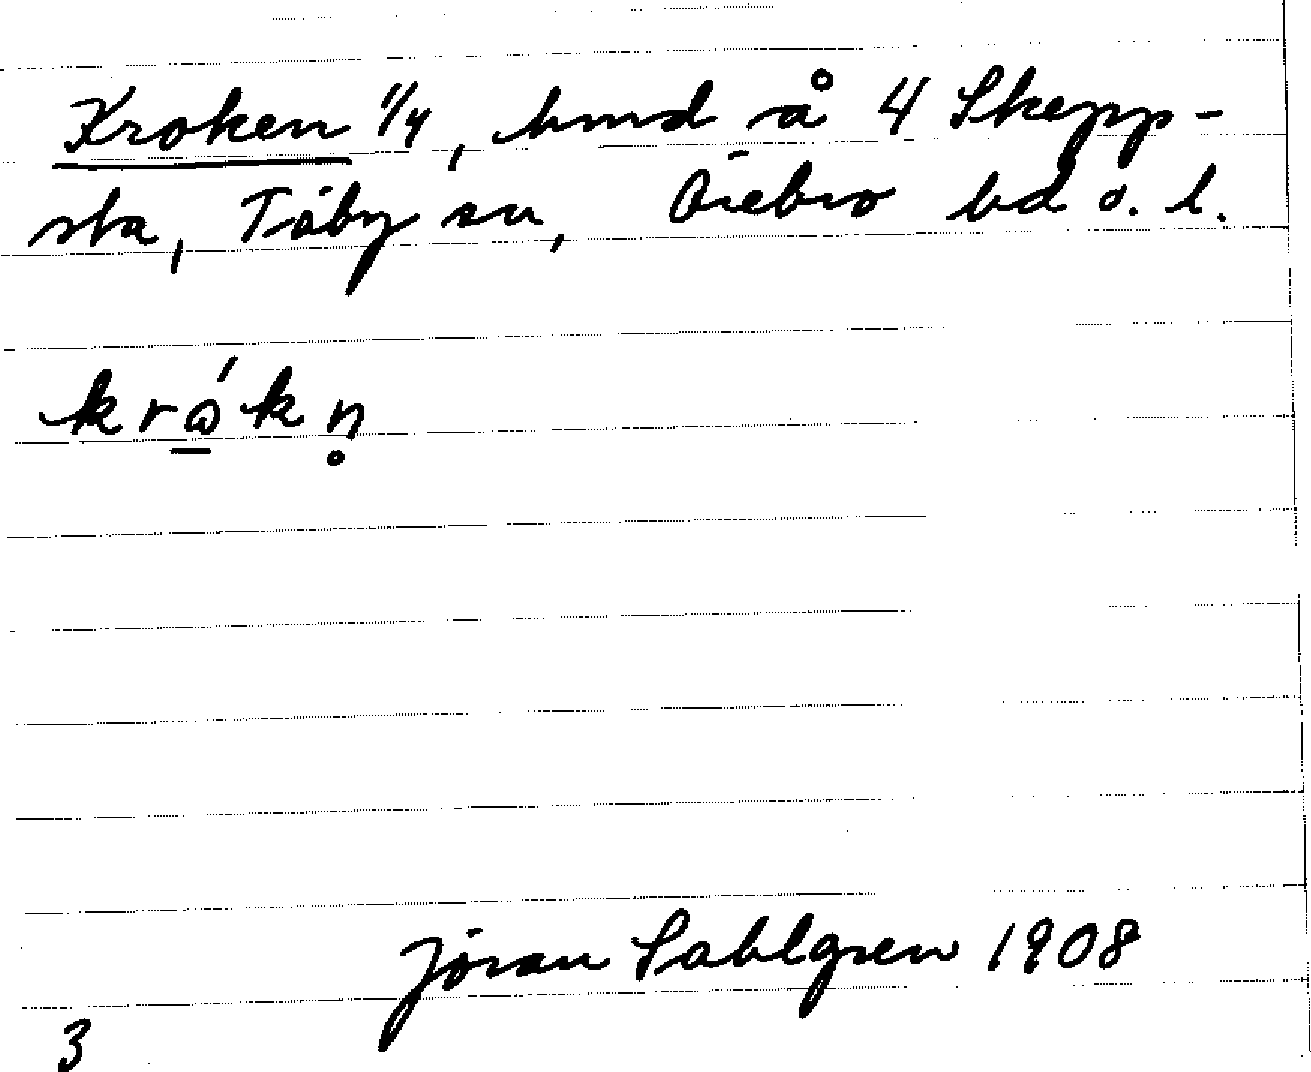 Kroken 1/4, hmd å 4 Skepp-
sta, Täby sn, Örebro hd o. l.
krώ̲kn̥
Jöran Sahlgren 1908
3